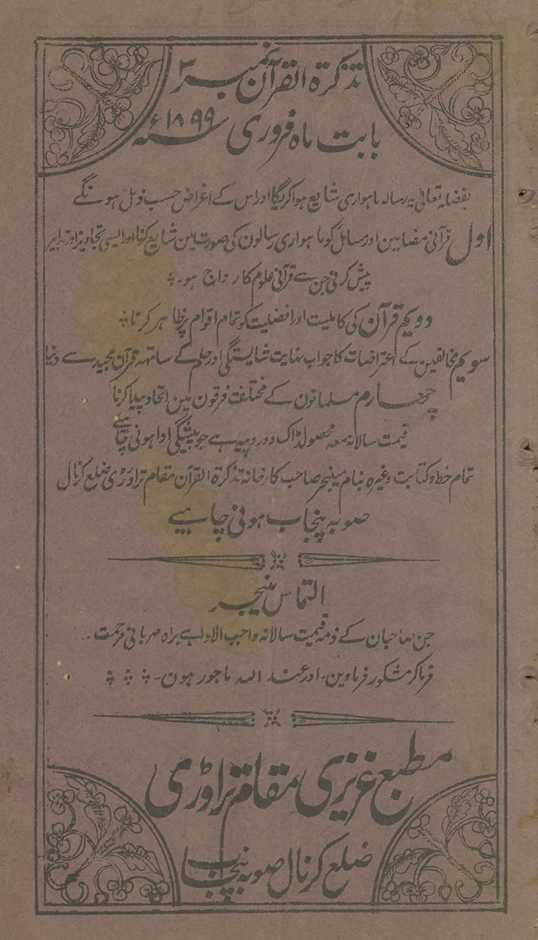 تذکرۃ القرآن نمبر ۲
بابت ماہ فروری ۱۸۹۹ء
بفضلہ تعالیٰ یہ رسالہ ماہواری شایع ہوا کریگا اور اس کے اغراض حسب ذیل ہونگے
اول قرآنی مضامین اور مسائل کو ماہواری رسالون کی صورت مین شایع کرنا اور ایسی تجاویز اور تدابیر
پیش کرنی جن سے قرآنی علوم کا رواج ہو۔
دویکم قرآن کی کاملیت اور افضلیت کو تمام اقوام پر ظاہر کرنا
سویکم مخالفین کے اعتراضات کا جواب نہایت شایستگی اور حلم کے ساتھ قرآن مجید سے دینا
چہارم مسلمانون کے مختلف فرقون مین اتحاد پیدا کرنا
قیمت سالانہ معہ محصول ڈاک دو روپیہ ہے جو پیشگی ادا ہونی چاہیے
تمام خط و کتابت وغیرہ بنام مینیجر صاحب کارخانہ تذکرۃ القرآن مقام تراوڑی ضلع کرنال
صوبہ پنجاب ہونی چاہیے
التماس منیجر
جن صاحبان کے ذمہ قیمت سالانہ واجب الادا ہے براہ مہربانی مرحمت
فرما کر مشکور فرماوین۔ اور عند اللہ ماجور ہون۔
مطبع عزیزی مقام تراوڑی
ضلع کرنال صوبہ پنجاب